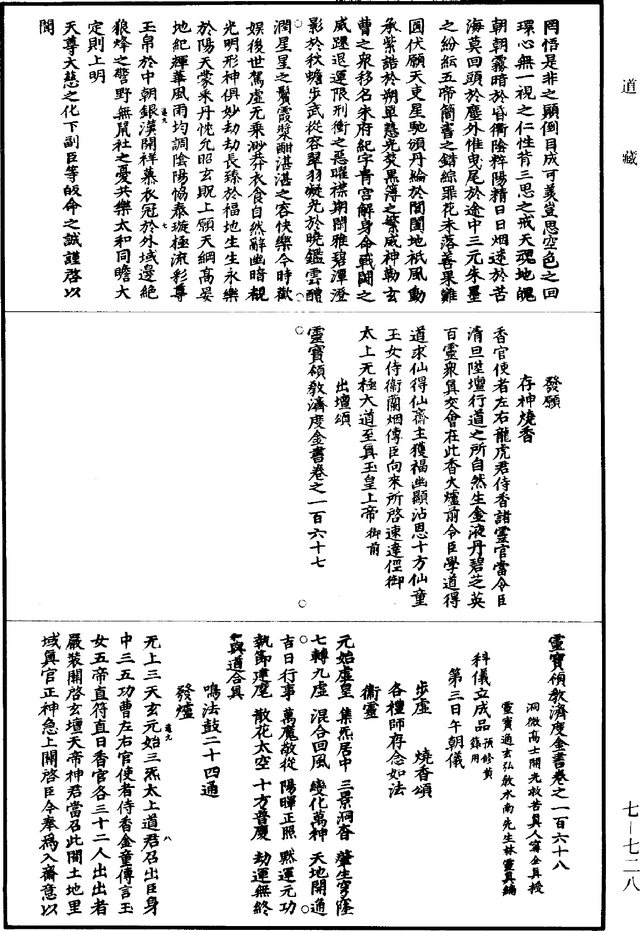 道藏
罔悟是非之顛倒目成可羨豈思空色之回
環心無一視之仁性背三思之戒天魂地魄
朝朝霧暗於昏衢陰粹陽精日日烟迷於苦
海莫回頭於塵外惟曳尾於途中三元朱墨
之紛紜五帝簡書之錯綜罪花未落善果難
圓伏願天吏星馳頒丹綸於閬闥地祇風動
承紫誥於朔單慧光焚黑簿之繁威神勒玄
曹之眾移名朱府紀字青宮解身命戰鬭之
威躔退運限刑衝之惡曜襟期閒雅碧潭澄
影於秋蟾步武從容翠羽凝光於曉鑑雲體
潤星星之鬢霞漿酣湛湛之容快樂今時歡
娛後世駕虛无乘渺莽衣食自然辭幽暗覩
光明形神俱妙劫劫長臻於福地生生永樂
於陽天蒙來丹忱允昭玄貺上願天綱高妥
地紀輝華風雨均調陰陽愓泰璇極流彩尊
玉帛於中朝銀漢開祥慕衣冠於外域邊絕
狼烽之警野無鼠社之憂共樂太和同瞻大
定則上明
天尊大慈之化下副臣等皈命之誠謹啓以
聞
發願
存神燒香
香官使者左右龍虎君侍香諸靈官當令臣
清旦陞壇行道之所自然生金液丹碧芝英
百靈衆真交會在此香火爐前令臣學道得
道求仙得仙齋主獲福幽顯沾恩十方仙童
玉女侍衛蘭烟傳臣向來所啓速達徑御
太上无極大道至真玉皇上帝御前
出壇頌
靈寶領教濟度金書卷之一百六十七
靈寶領教濟度金書卷之一百六十八
洞微高士開光救苦真人甯全真授
靈寶通玄弘教水南先生林靈真編
科儀立成品預修黃籙用
第三日午朝儀
步虛 燒香頌
各種師存念如法
衛靈
元始虛皇 集炁居中 三景洞杳 肇生穹窿
七轉九虛 混合回風 變化萬神 天地開通
吉日行事 萬魔敬從 陽暉正照 默運元功
執節建麾 散花太空 十方普度 劫運無終
與道合真
鳴法鼓二十四通
發爐
无上三天玄元始三炁太上道君召出臣身
中三五功曹左右官使者侍香金童傳言玉
女五帝直符直日香官各三十二人出出者
嚴裝關啓玄壇天帝神君當召此間土地里
域真官正神急上關啓臣今奉爲入齋意以
七—七二八